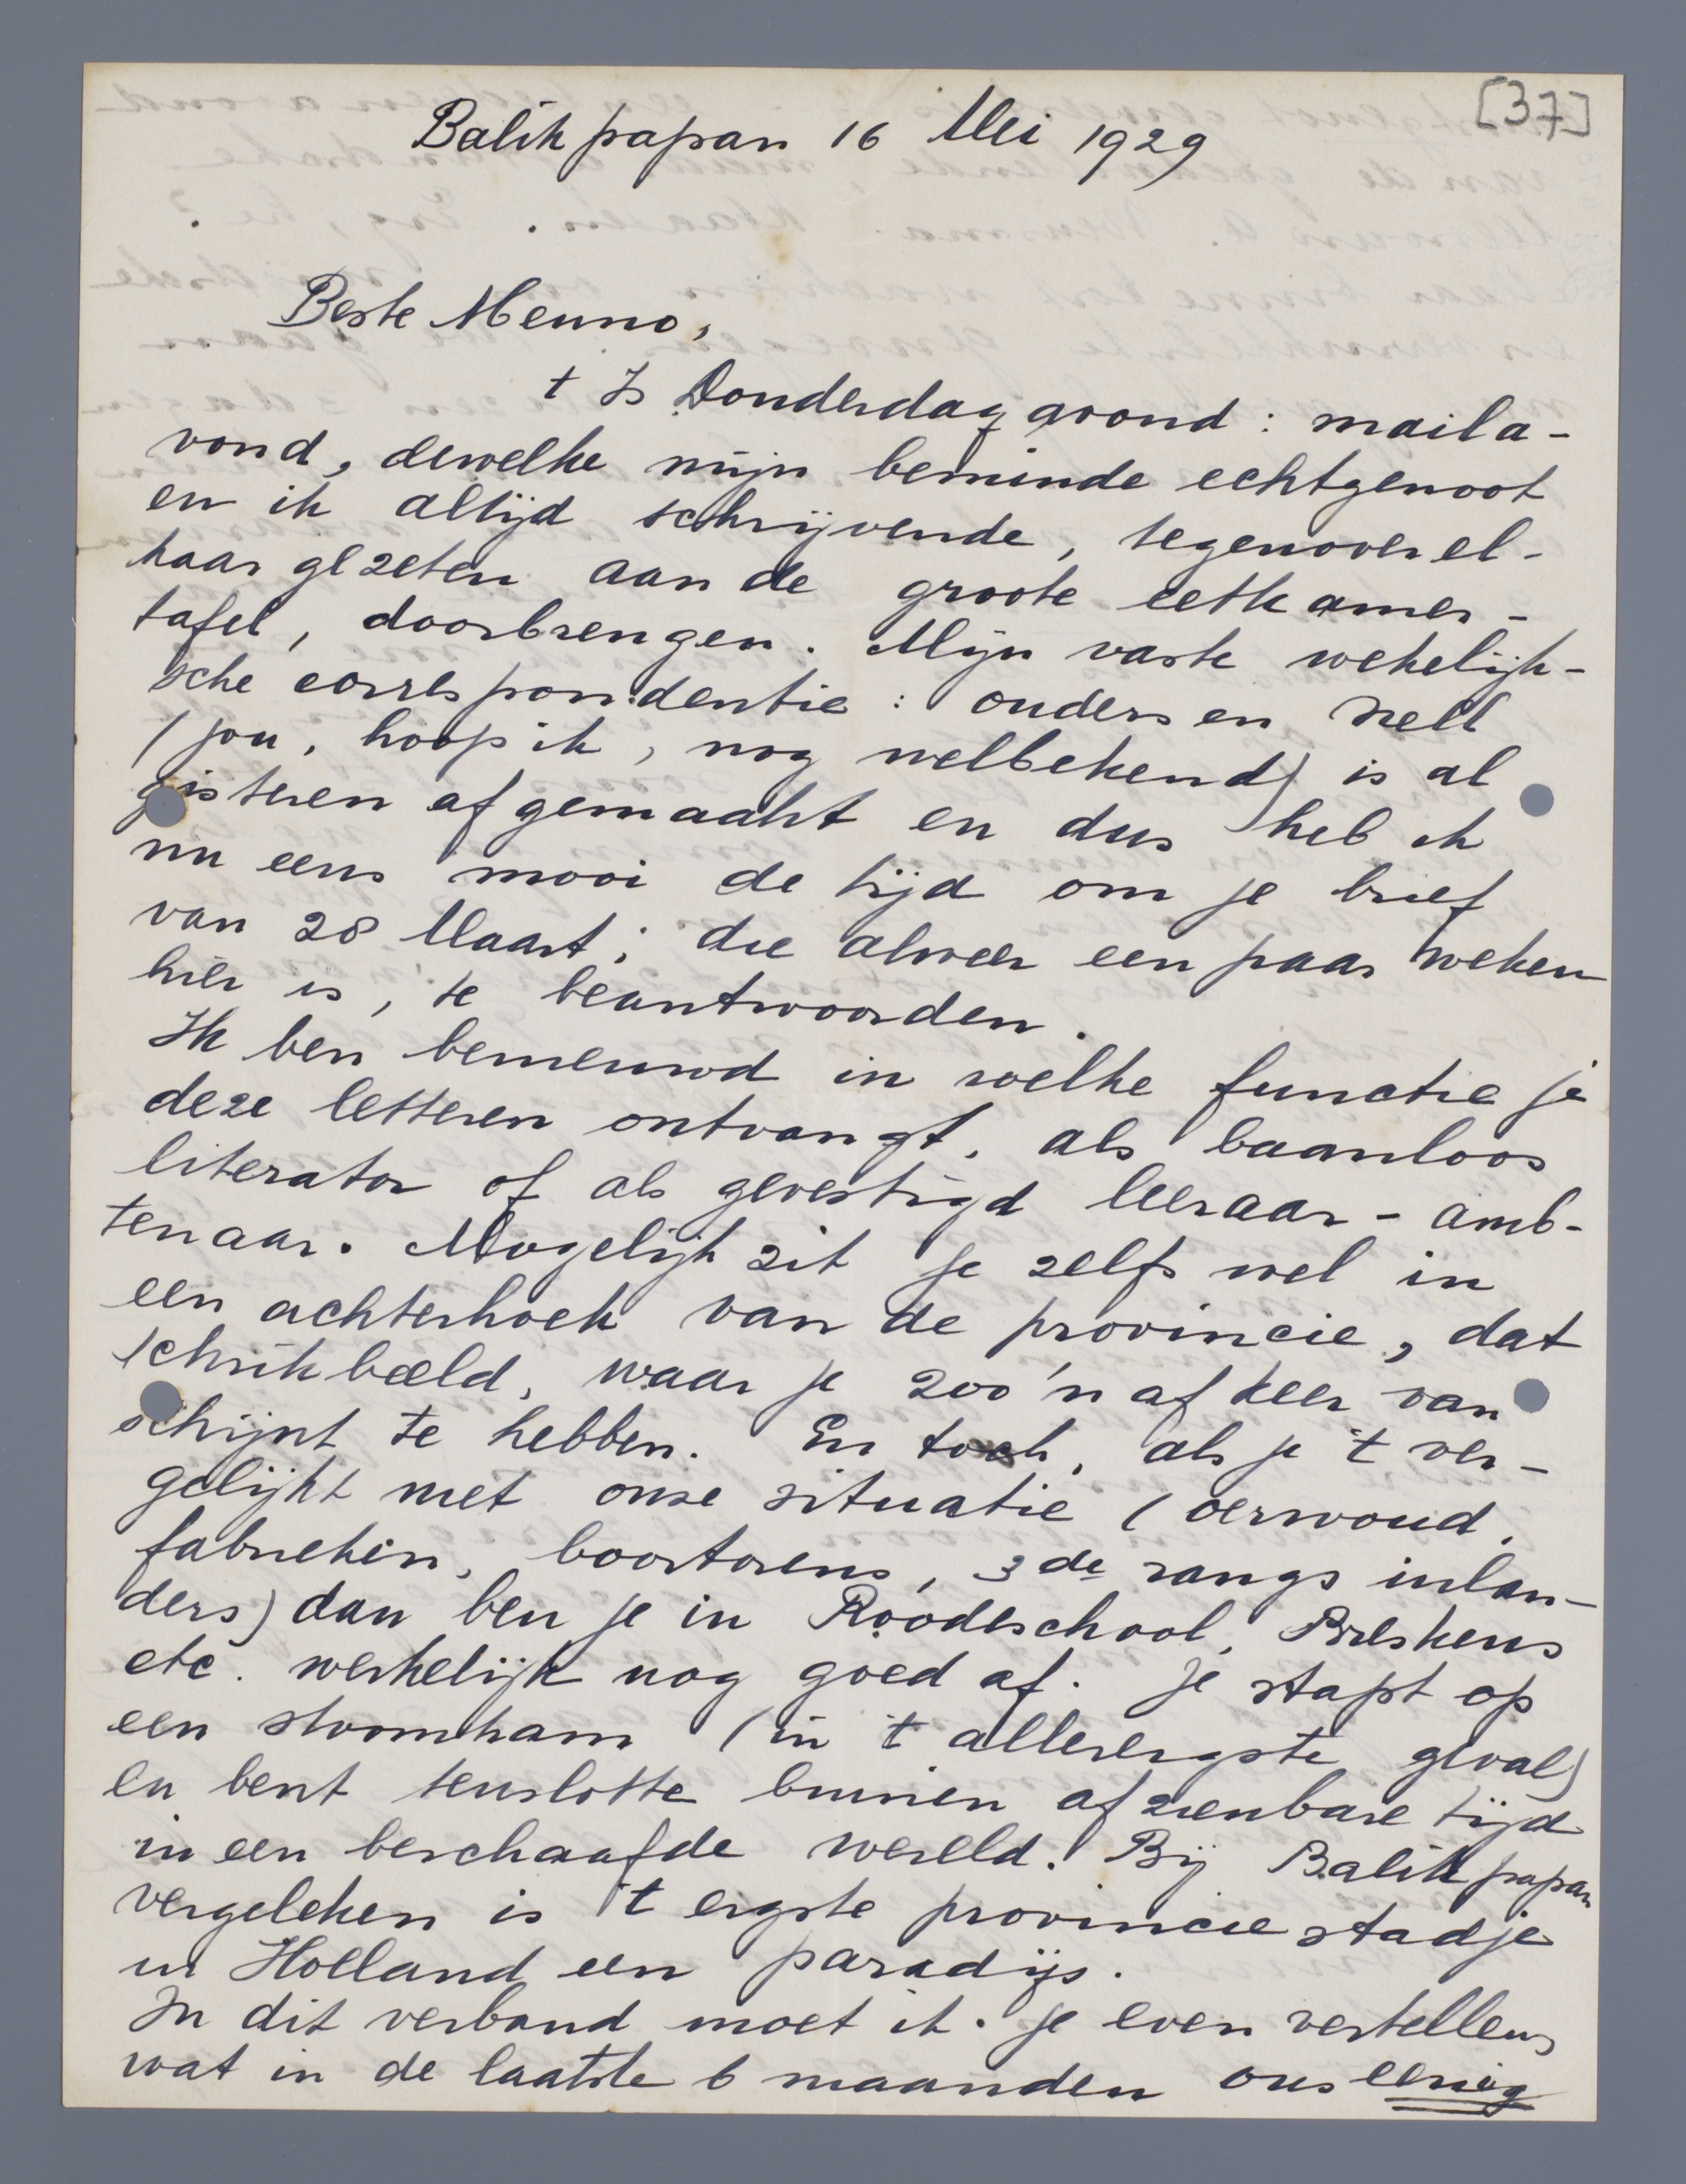 [37]
Balikpapan 16 Mei 1929
Beste Menno,
t Is Donderdagavond: maila-
vond, dewelke mijn beminde echtgenoot
en ik altijd schrijvende, tegenoverel-
kaar gezeten aan de groote eetkamer-
tafel, doorbrengen. Mijn vaste wekelijk-
sche correspondentie: ouders en Nell
(jou, hoop ik, nog welbekend) is al
gisteren afgemaakt en dus heb ik
nu eens mooi de tijd om je brief
van 28 Maart, die alweer een paar weken
hier is, te beantwoorden.
Ik ben benieuwd in welke functie je
deze letteren ontvangt, als baanloos
literator of als gevestigd leeraar-amb-
tenaar. Mogelijk zit je zelfs wel in
een achterhoek van de provincie, dat
schrikbeeld, waar je zoo'n afkeer van
schijnt te hebben. En toch, als je 't ver-
gelijkt met onze situatie (oerwoud,
fabrieken, boortorens, 3de rangs inlan-
ders) dan ben je in Roodeschool, Breskens
etc. werkelijk nog goed af. Je stapt op
een stoomtram (in 't allerergste geval)
en bent tenslotte binnen afzienbare tijd
in een beschaafde wereld. Bij Balikpapan
vergeleken is 't ergste provinciestadje
in Holland een paradijs.
In dit verband moet ik je even vertellen,
wat in de laatste 6 maanden ons eenig